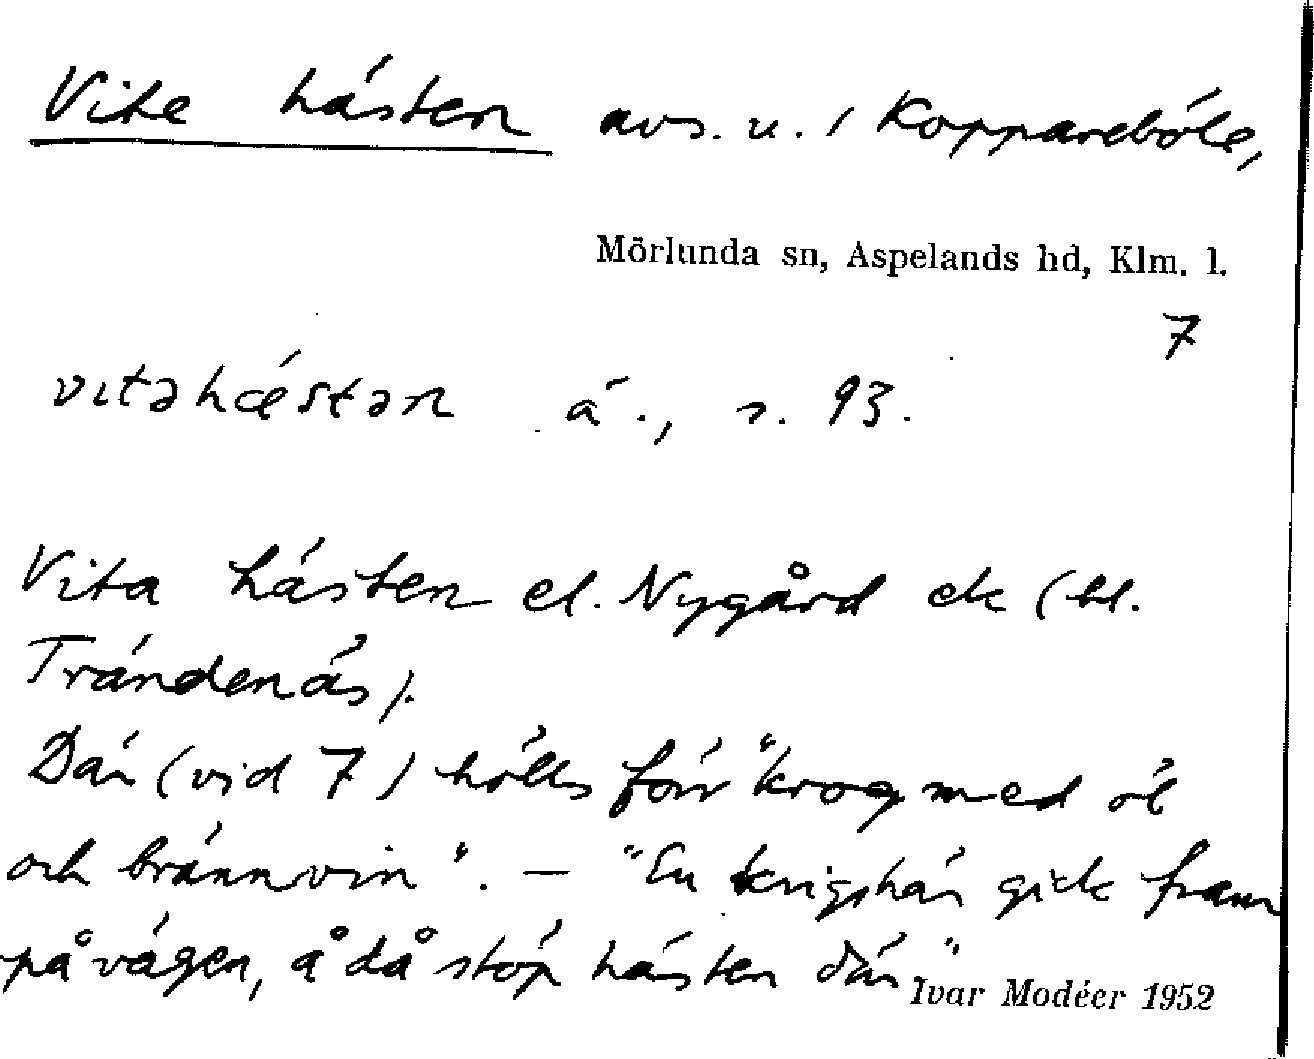 Vite hästen avs. u. i Koppareböle,
Mörlunda sn, Aspelands hd, Klm. l.
7
vitəhǽstən á., s. 93.
Vita hästen el. Nygård ek (bl.
Trändenäs).
Där (vid 7) hölls förr "krog med öl
och brännvin". — "En krigshär gick fram
på vägen, å då stöp hästen där."
Ivar Modéer 1952